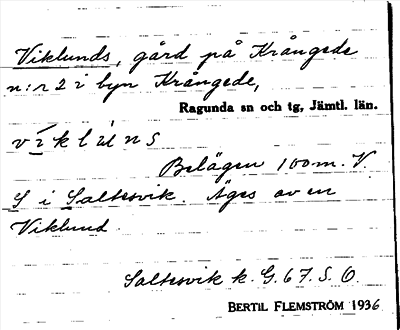 Viklunds, gård på Krångede
n:r 2 i byn Krångede,
Ragunda sn och tg, Jämtl. län.
viklúns
Belägen 100 m. V
S i Saltesvik. Äges av en
Viklund.
Saltesvik k. G. 67. S. O.
BERTIL FLEMSTRÖM 1936